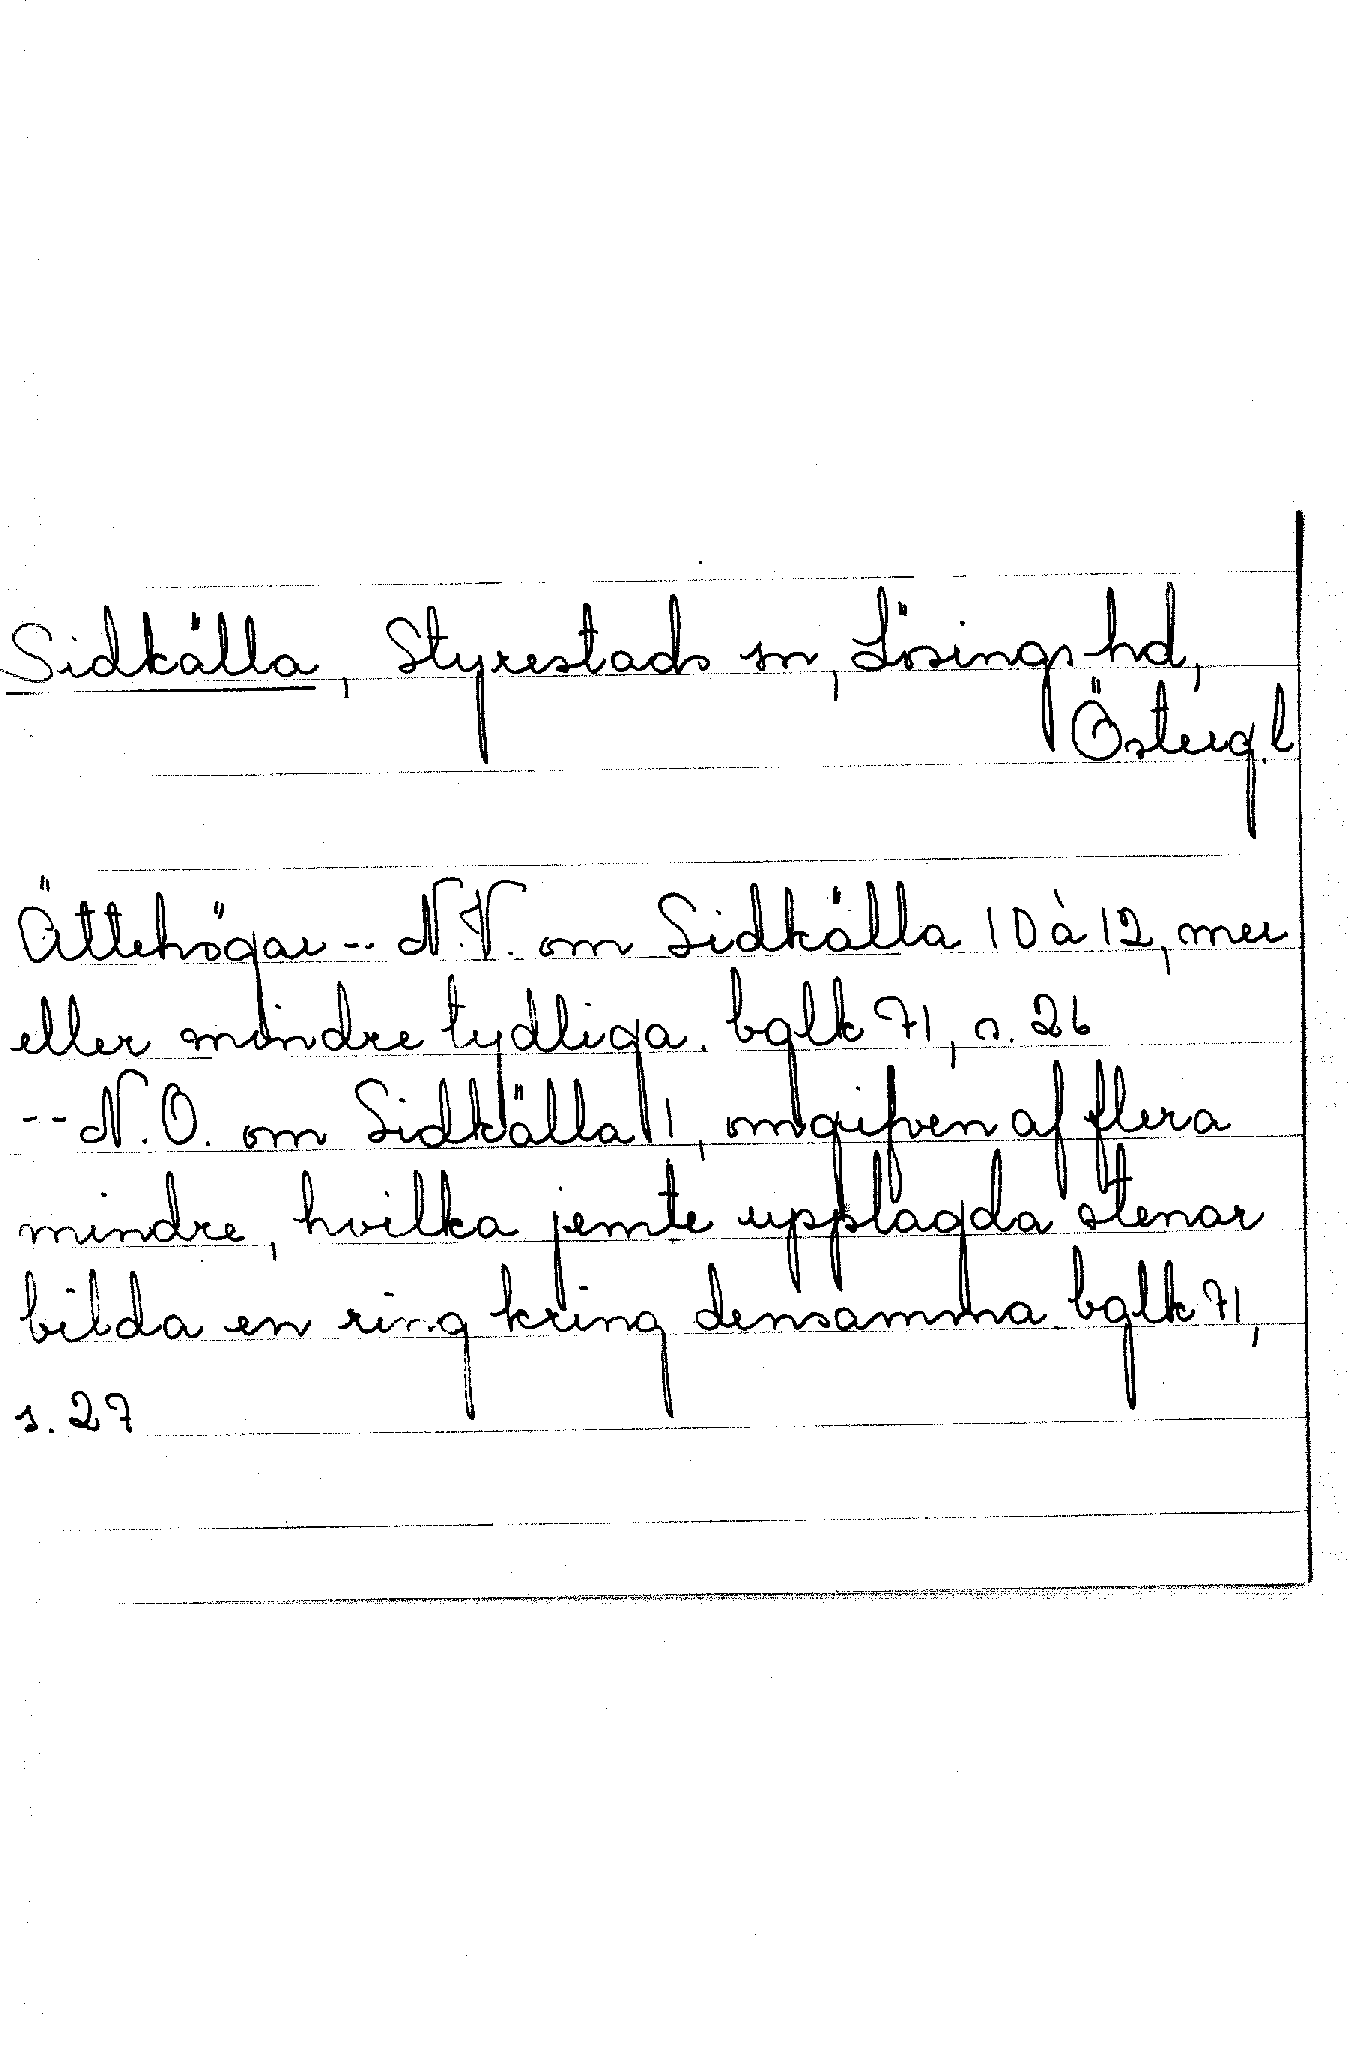 Sidkälla, Styrestads sn, Lösings hd,
Österg.l
Ättehögar -- N.V. om Sidkälla 10 à 12, mer
eller mindre tydliga. bglk 71, s. 26
-- N.O. om Sidkälla 1, omgifven af flera
mindre, hvilka jemte upplagda stenar
bilda en ring kring densamma. bglk 71,
s. 27